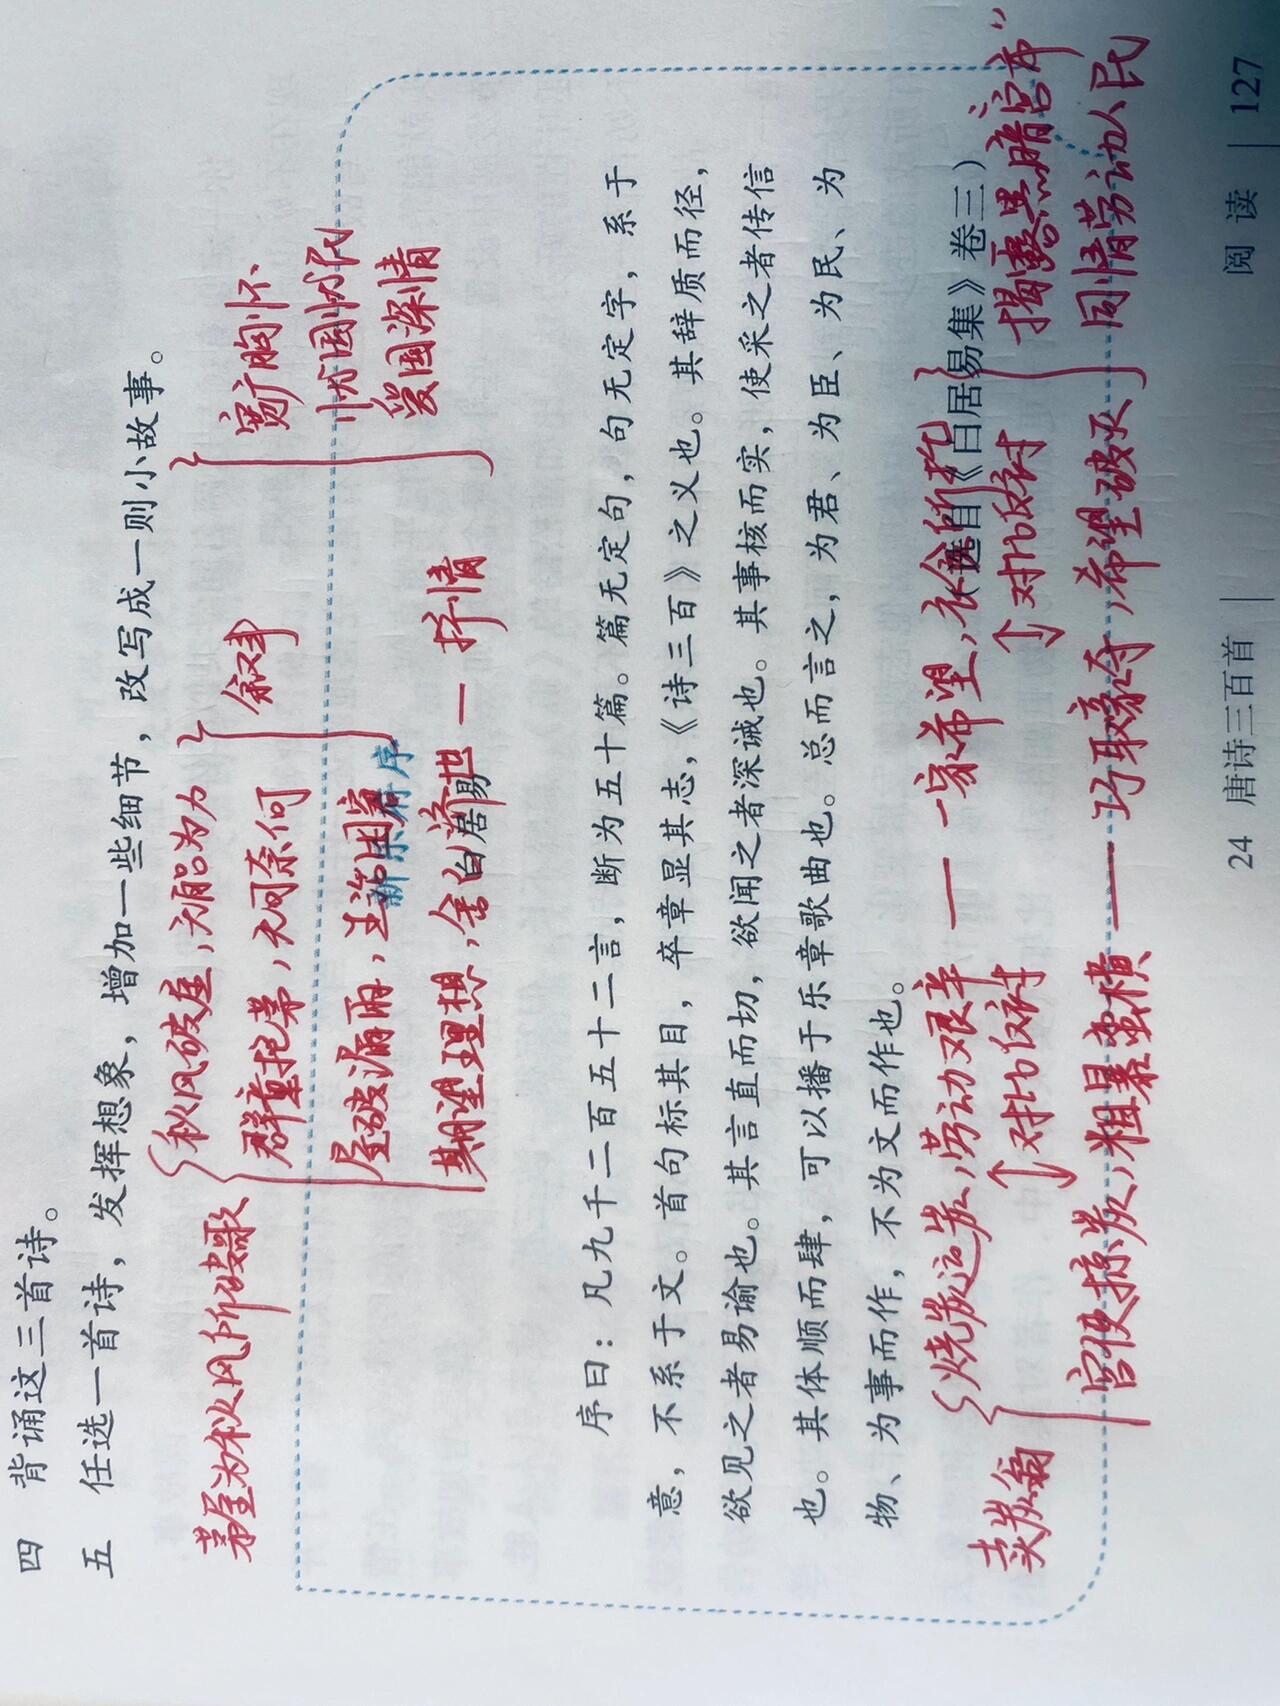 四 背诵这三首诗。
五 任选一首诗，发挥想象，增加一些细节，改写成一则小故事。
茅屋为秋风所破歌
秋风破屋，无能为力
群童抱茅，无可奈何
屋破漏雨，生活困窘
叙事
期望理想，舍 — 抒情
宽广胸怀
忧国忧民
爱国深情
新乐府序
白居易
序曰：凡九千二百五十二言，断为五十篇。篇无定句，句无定字，系于
意，不系于文。首句标其目，卒章显其志，《诗三百》之义也。其辞质而径，
欲见之者易谕也。其言直而切，欲闻之者深诫也。其事核而实，使采之者传信
也。其体顺而肆，可以播于乐章歌曲也。总而言之，为君、为臣、为民、为
物、为事而作，不为文而作也。
（选自《白居易集》卷三）
卖炭翁
烧炭运炭，劳动艰辛 — 一家希望，衣食所托
对比反衬 对比反衬
宫使掠炭，粗暴蛮横 — 巧取豪夺，希望破灭
揭露黑暗“宫市”
同情劳动人民
24 唐诗三百首 | 阅读 | 127